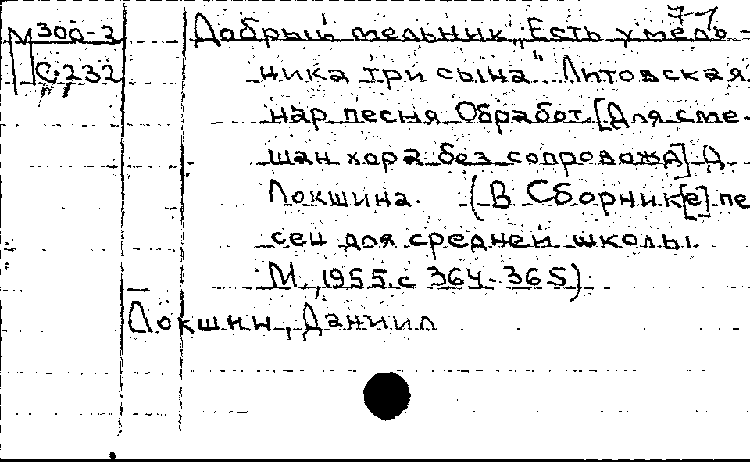 77
М 300-3 Добрый мельник „Есть у мель-
С 232 ника три сына" Литовская
нар песня Обработ. [Для сме-
шан хора без сопровожд] Д.
Локшина. (В Сборник[е] пе
сен для средней школы.
М, 1955. с 364-365)
Локшин, Даниил